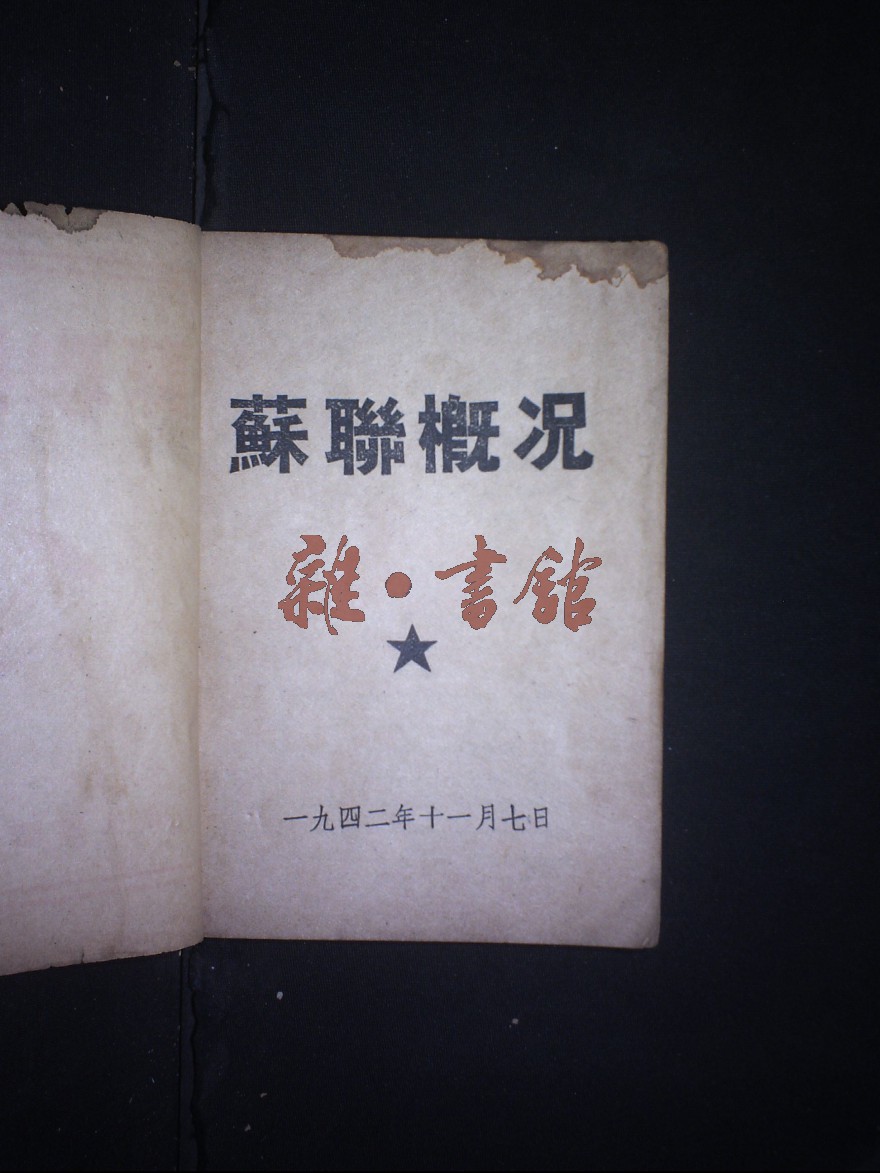 蘇聯概况
雜·書館
一九四二年十一月七日